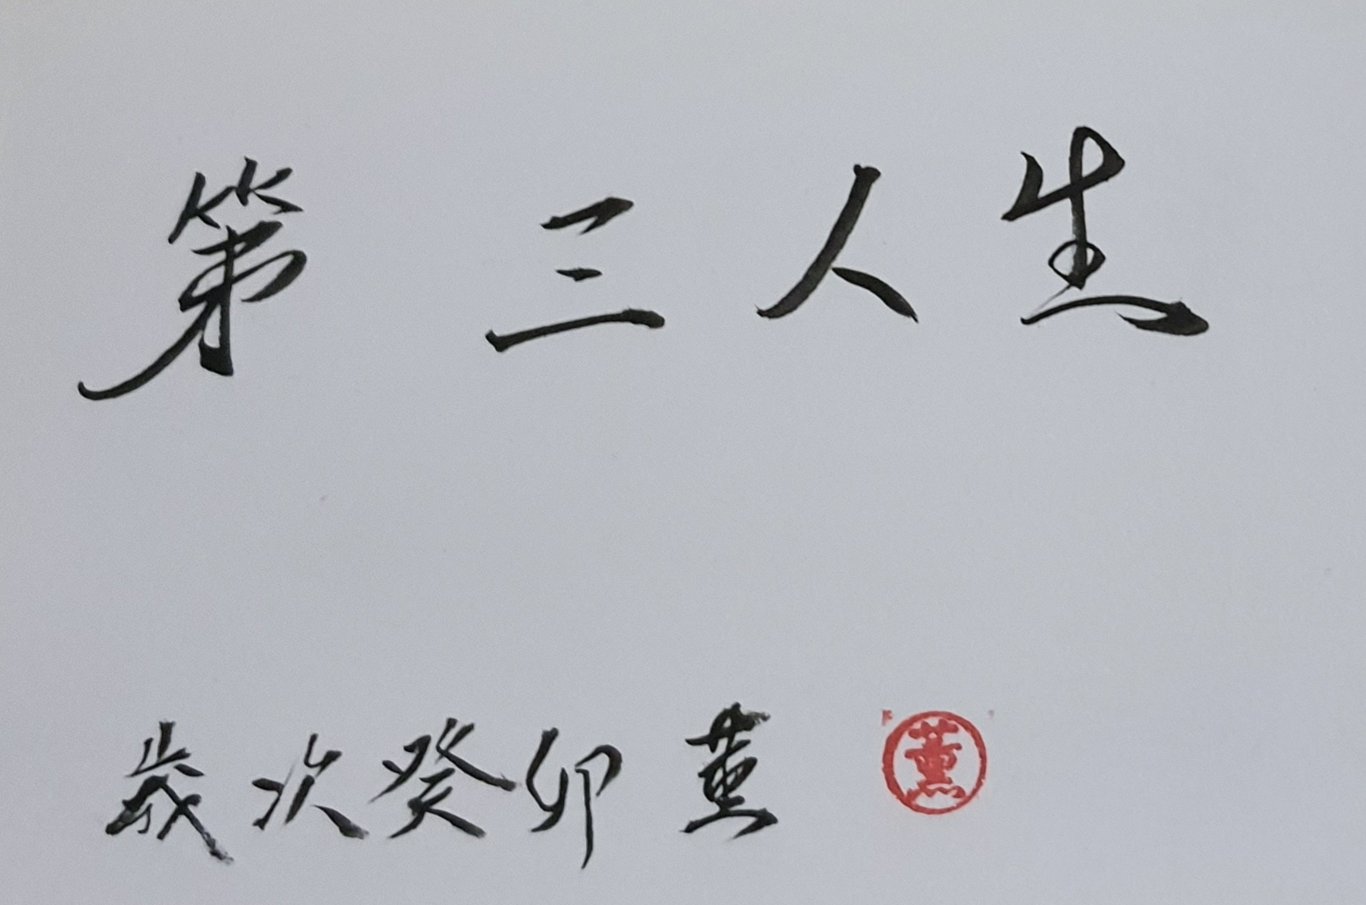 第三人生
歲次癸卯 薰 薰